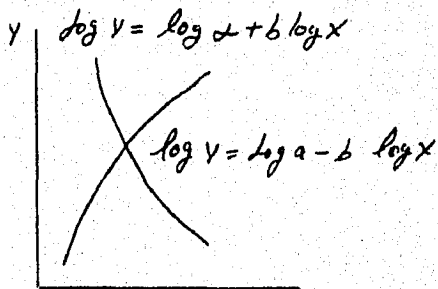 Y
log Y = log α + b log X
log Y = log a - b log X